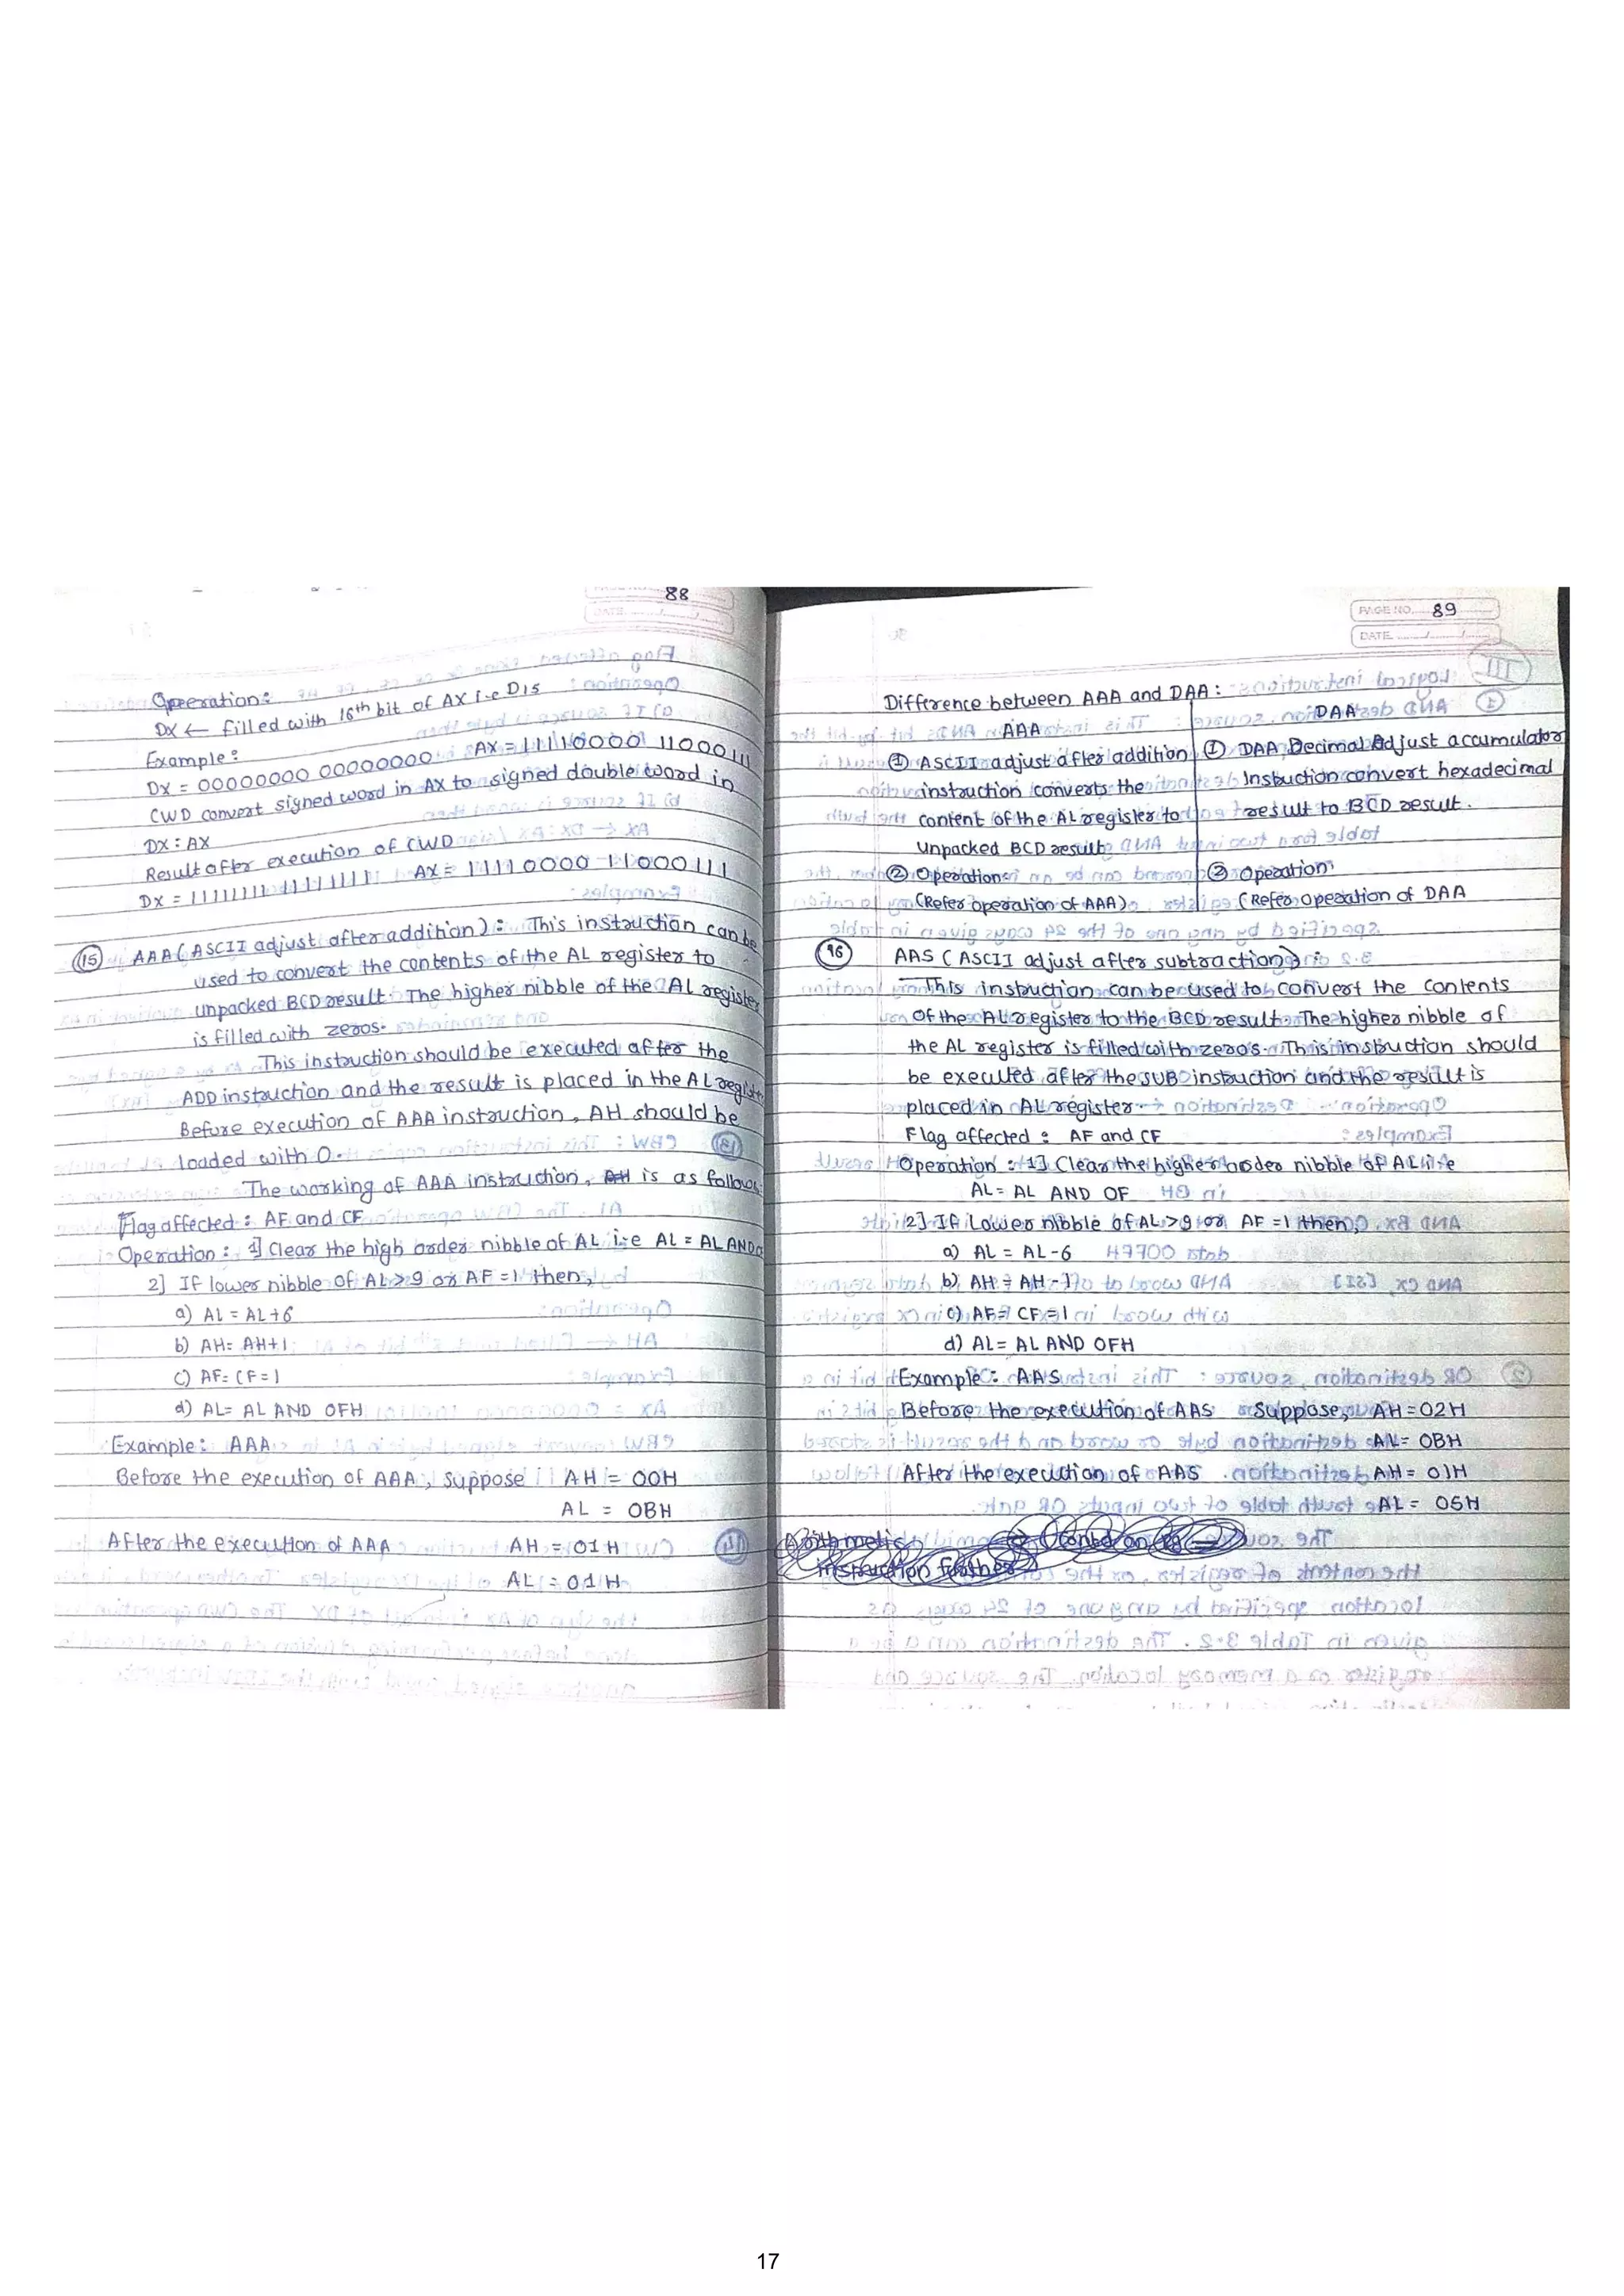 88
Operation:
DX ← filled with 16th bit of AX i.e D15
Example:
DX = 00000000 00000000 AX = 11110000 11000111
CWD convert signed word in AX to signed double word in
DX : AX
Result after execution of CWD
DX = 11111111 11111111 AX = 11110000 11000111
(15) AAA (ASCII adjust after addition) : This instruction can be
used to convert the contents of the AL register to
unpacked BCD result. The higher nibble of the AL register
is filled with zeros.
This instruction should be executed after the
ADD instruction and the result is placed in the AL register
Before execution of AAA instruction, AH should be
loaded with 0.
The working of AAA instruction, is as follows:
Flag affected : AF and CF
Operation : 1] Clear the high order nibble of AL i.e AL = AL AND
2] If lower nibble of AL > 9 or AF = 1 then,
a) AL = AL+6
b) AH = AH+1
c) AF = CF = 1
d) AL = AL AND 0FH
Example : AAA
Before the execution of AAA, suppose AH = 00H
AL = 0BH
After the execution of AAA AH = 01H
AL = 01H
PAGE NO. 89
DATE
Difference between AAA and DAA :
AAA DAA
① ASCII adjust after addition ① DAA, Decimal Adjust accumulator
instruction converts the Instruction convert hexadecimal
content of the AL register to result to BCD result.
Unpacked BCD result
② Operation ② Operation
(Refer operation of AAA) (Refer operation of DAA
(16) AAS (ASCII adjust after subtraction) :
This instruction can be used to convert the contents
of the AL register to the BCD result. The higher nibble of
the AL register is filled with zero's. This instruction should
be executed after the SUB instruction and the result is
placed in AL register.
Flag affected : AF and CF
Operation : 1] Clear the higher order nibble of AL i.e
AL = AL AND 0F
2] If Lower nibble of AL > 9 or AF = 1 then,
a) AL = AL - 6
b) AH = AH - 1
c) AF = CF = 1
d) AL = AL AND 0FH
Example : AAS
Before the execution of AAS Suppose, AH = 02H
AL = 0BH
After the execution of AAS AH = 01H
AL = 05H
17